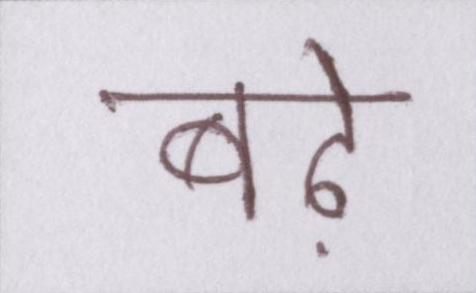 बढ़े